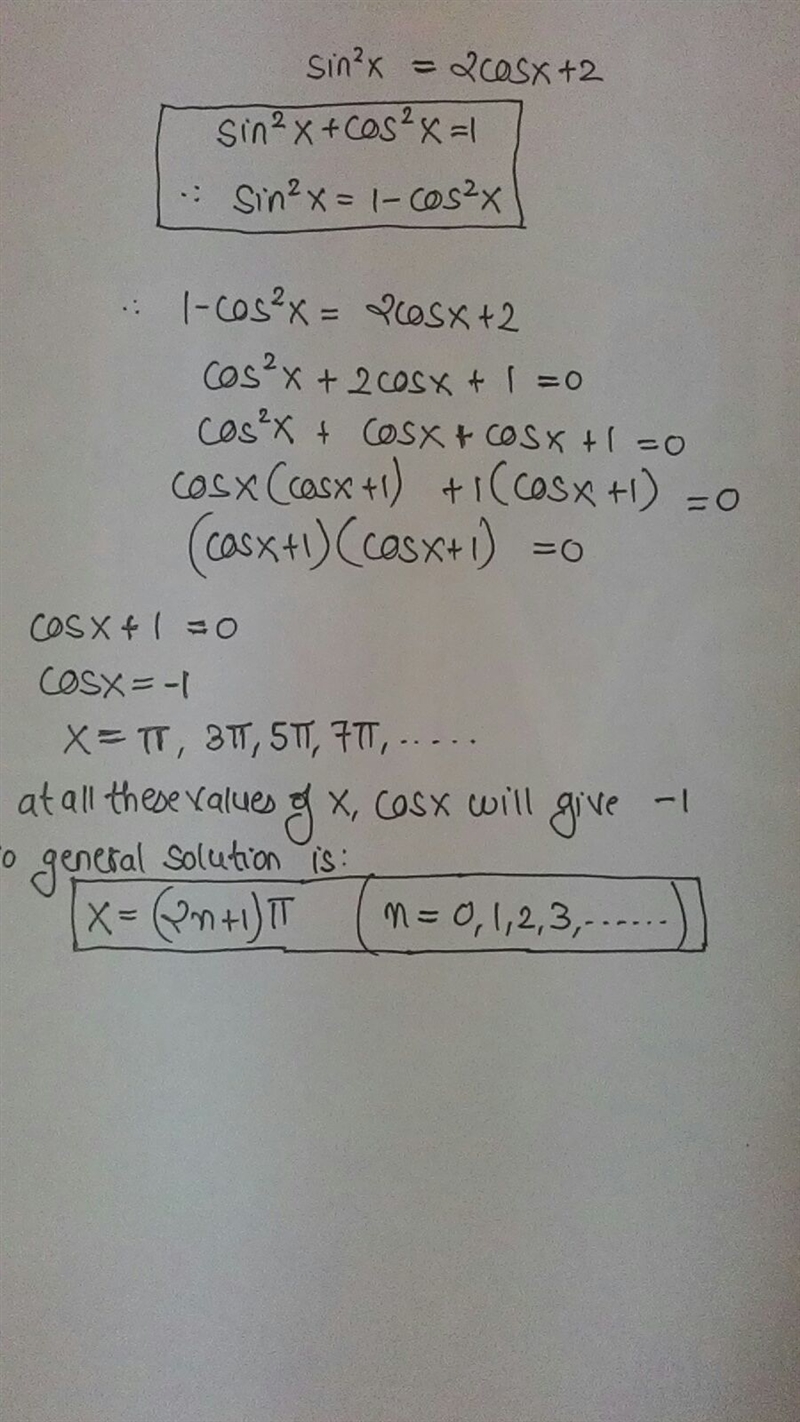 sin²x = 2cosx+2
sin²x+cos²x=1
∴ sin²x = 1-cos²x
∴ 1-cos²x = 2cosx+2
cos²x + 2cosx + 1 =0
cos²x + cosx + cosx +1 =0
cosx(cosx+1) +1(cosx+1) =0
(cosx+1)(cosx+1) =0
cosx+1 =0
cosx=-1
x= π, 3π, 5π, 7π, ......
at all these values of x, cosx will give -1
o general solution is:
x= (2n+1)π (n= 0,1,2,3,......)